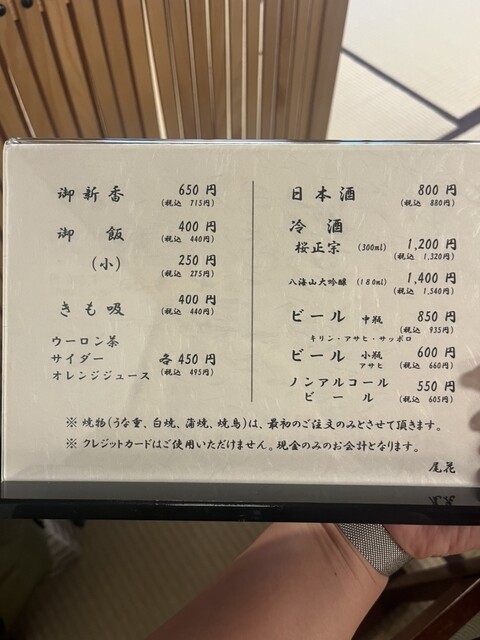 御新香 650円
(税込 715円)
御飯 400円
(税込 440円)
(小) 250円
(税込 275円)
きも吸 400円
(税込 440円)
ウーロン茶
サイダー 各450円
オレンジジュース (税込 495円)
日本酒 800円
(税込 880円)
冷酒
桜正宗 (300ml) 1,200円
(税込 1,320円)
八海山大吟醸 (180ml) 1,400円
(税込 1,540円)
ビール 中瓶 850円
(税込 935円)
キリン・アサヒ・サッポロ
ビール 小瓶 600円
アサヒ (税込 660円)
ノンアルコール
ビール 550円
(税込 605円)
※ 焼物(うな重、白焼、蒲焼、焼鳥)は、最初のご注文のみとさせて頂きます。
※ クレジットカードはご使用いただけません。現金のみのお会計となります。
尾花